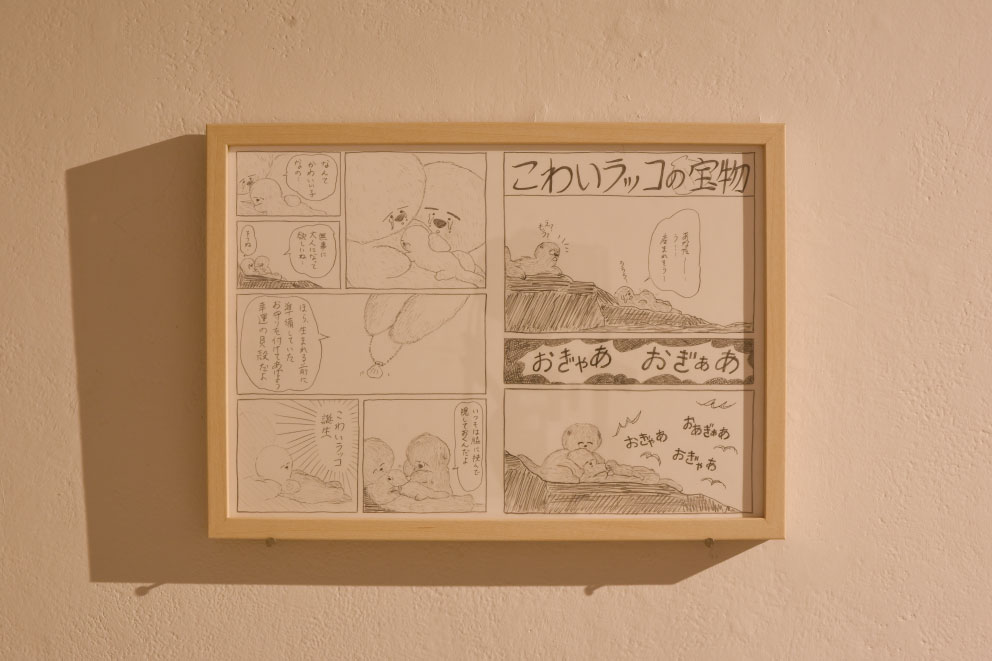 こわいラッコの宝物
あなたー
う……
産まれそうー
おぎゃあ
おぎぁあ
おぎゃあ
おあぎゃあ
おぎゃあ
なんて
かわいい子
なの!
無事に
大人になって
欲しいね
そうね
ほら、生まれる前に
準備していた
お守りを付けてあげよう
幸運の貝殻だよ
いつもは脇に挟んで
隠しておくんだよ
こわいラッコ
誕生